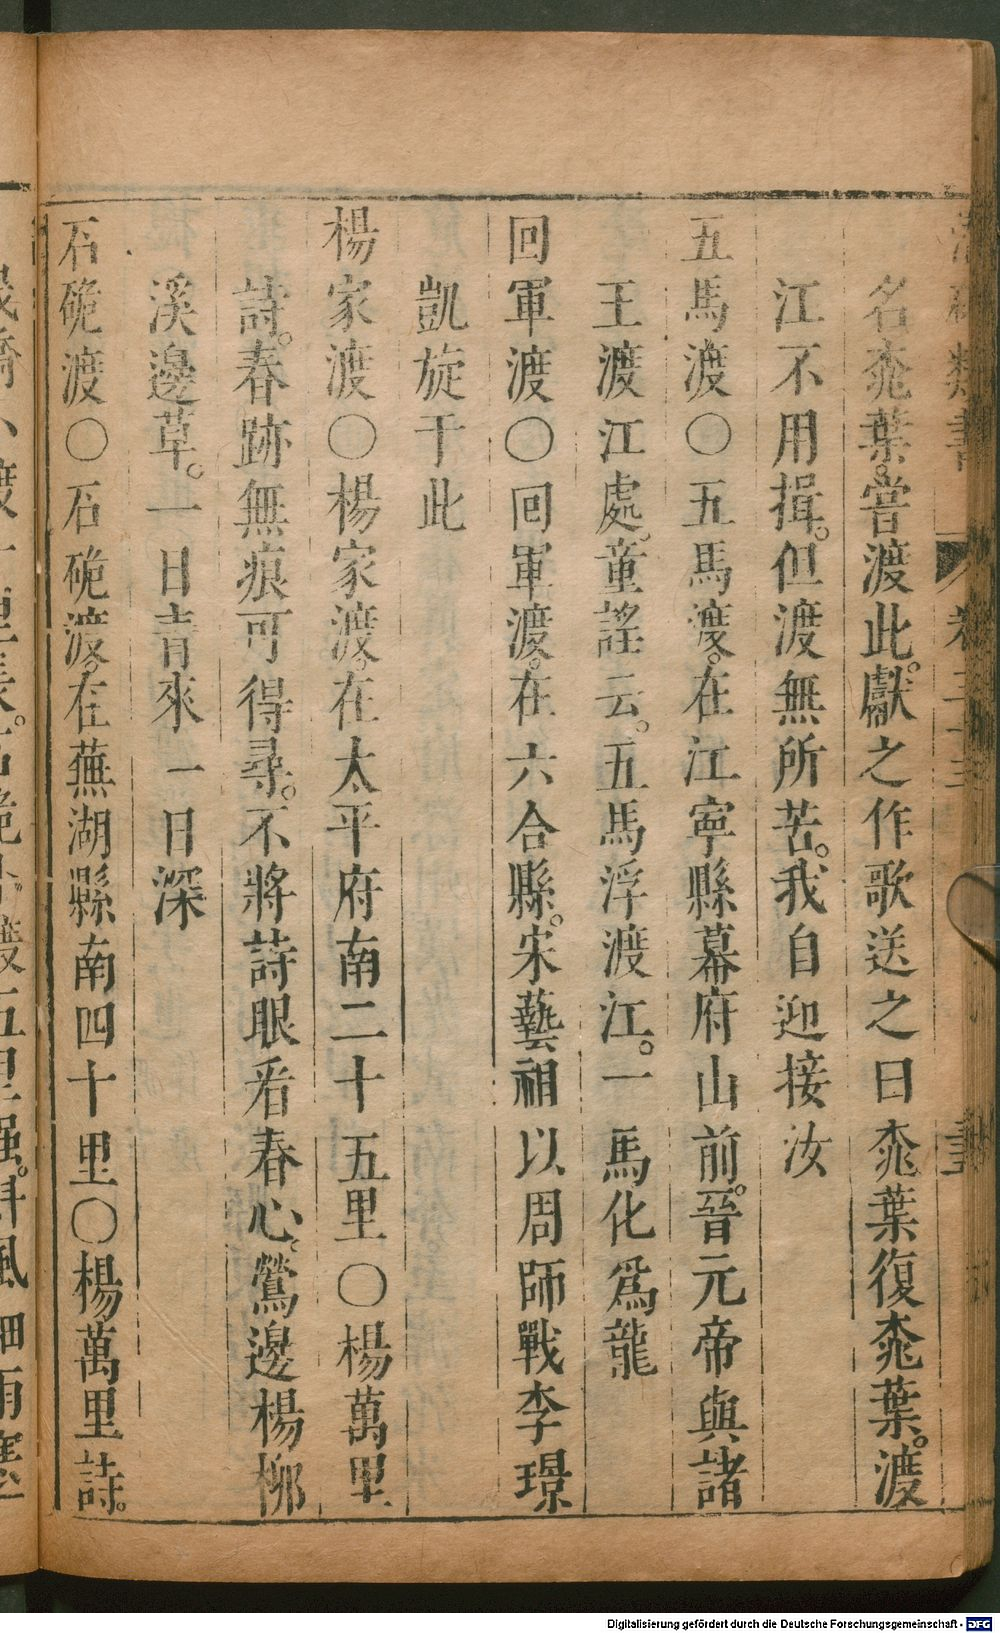 名桃葉。嘗渡此。獻之作歌送之曰桃葉復桃葉。渡
江不用揖。但渡無所苦。我自迎接汝
五馬渡〇五馬渡。在江寧縣幕府山前。晉元帝與諸
王渡江處。童謠云。五馬浮渡江。一馬化爲龍
回軍渡〇回軍渡。在六合縣。宋藝祖以周師戰李璟
凱旋于此
楊家渡〇楊家渡。在太平府南二十五里〇楊萬里
詩。春跡無痕可得尋。不將詩眼看春心。鶯邊楊柳
溪邊草。一日青來一日深
石硊渡〇石硊渡。在蕪湖縣南四十里〇楊萬里詩。
Digitalisierung gefördert durch die Deutsche Forschungsgemeinschaft - DFG